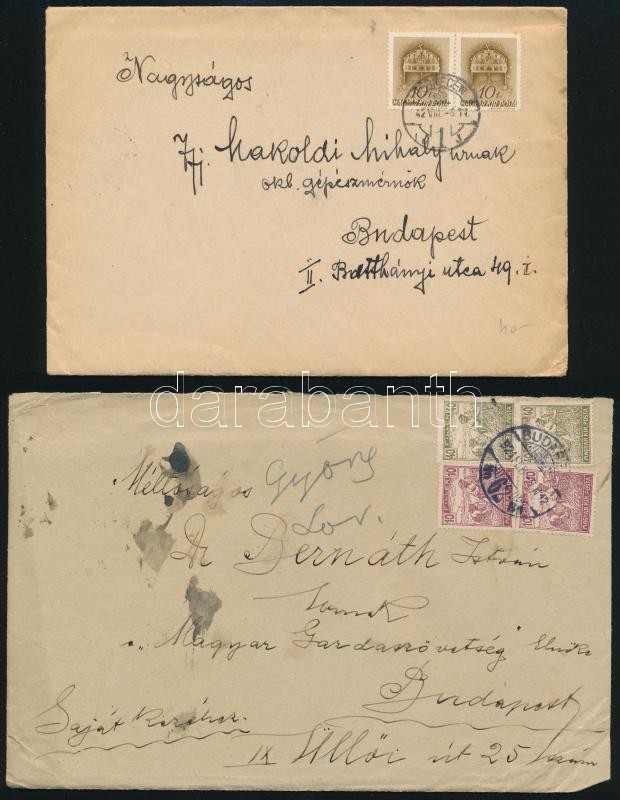 Nagyságos
Ifj. Makoldi Mihály úrnak
okl. gépészmérnök
Budapest
II. Batthányi utca 49. I.
10 F. 10 F.
MAGYAR KIR. POSTA MAGYAR KIR. POSTA
42 VIII. -6. 17
1
40-
darabanth
Méltóságos
György
Lov.
Dr Bernáth István
"Magyar Gazdaszövetség" Elnöke
Budapest
Saját kezéhez
IX Üllői út 25 szám
40 40
10 10
MAGYAR POSTA
BUDAPEST